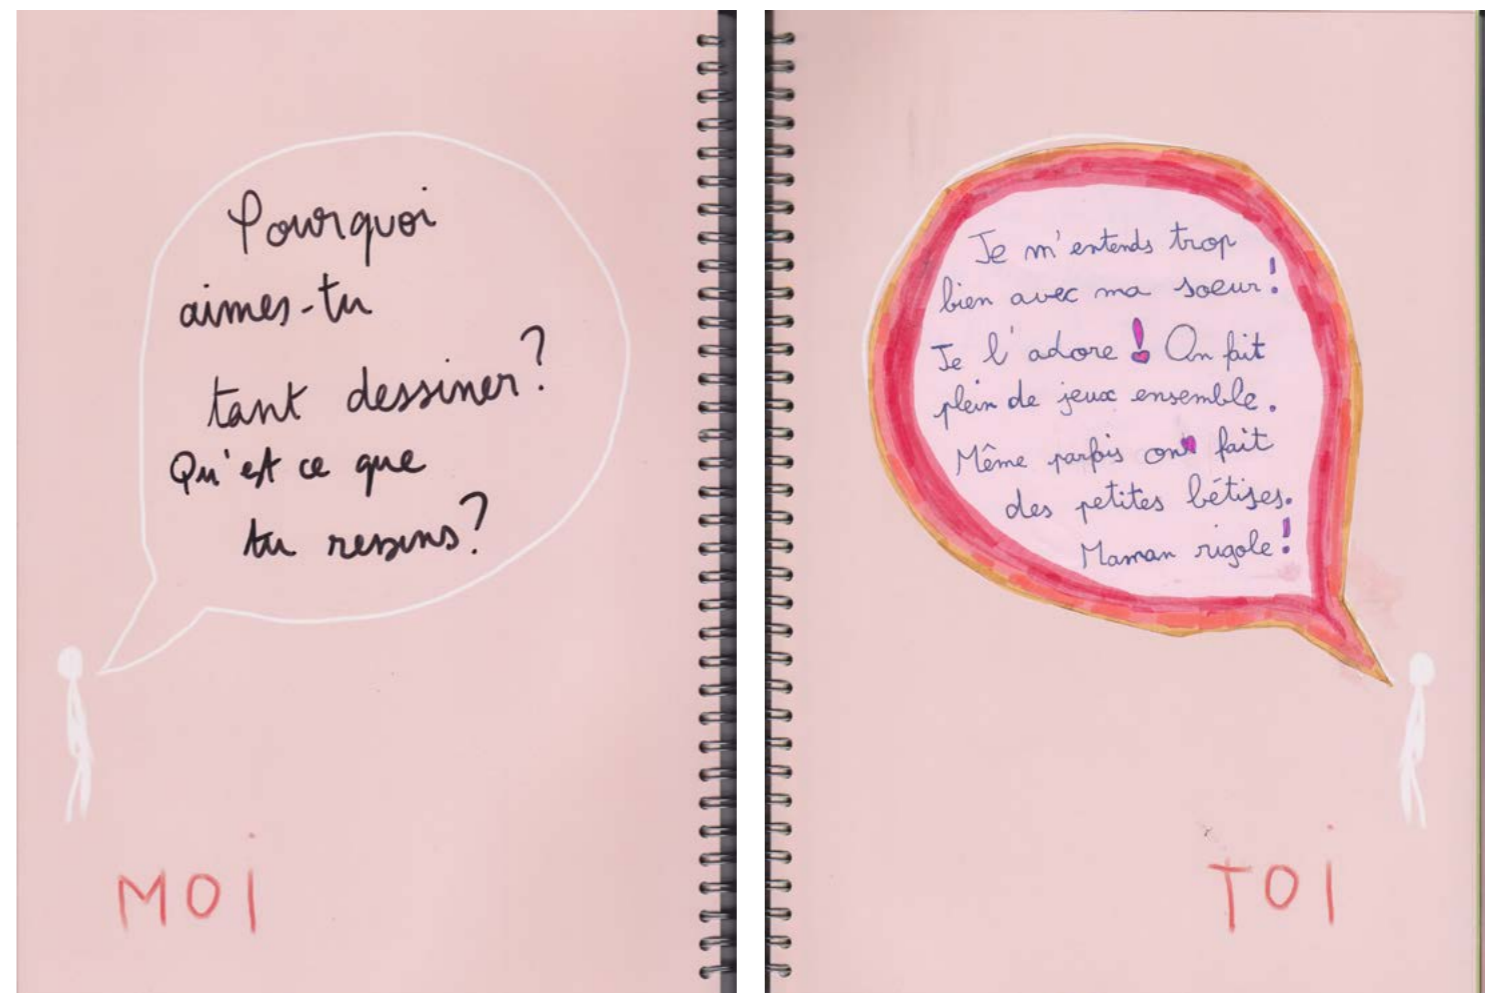 Pourquoi
aimes-tu
tant dessiner?
Qu'est ce que
tu ressens?
MOi
Je m'entends trop
bien avec ma soeur!
Je l'adore! On fait
plein de jeux ensemble.
Même parfois on fait
des petites bétises.
Maman rigole!
TOi